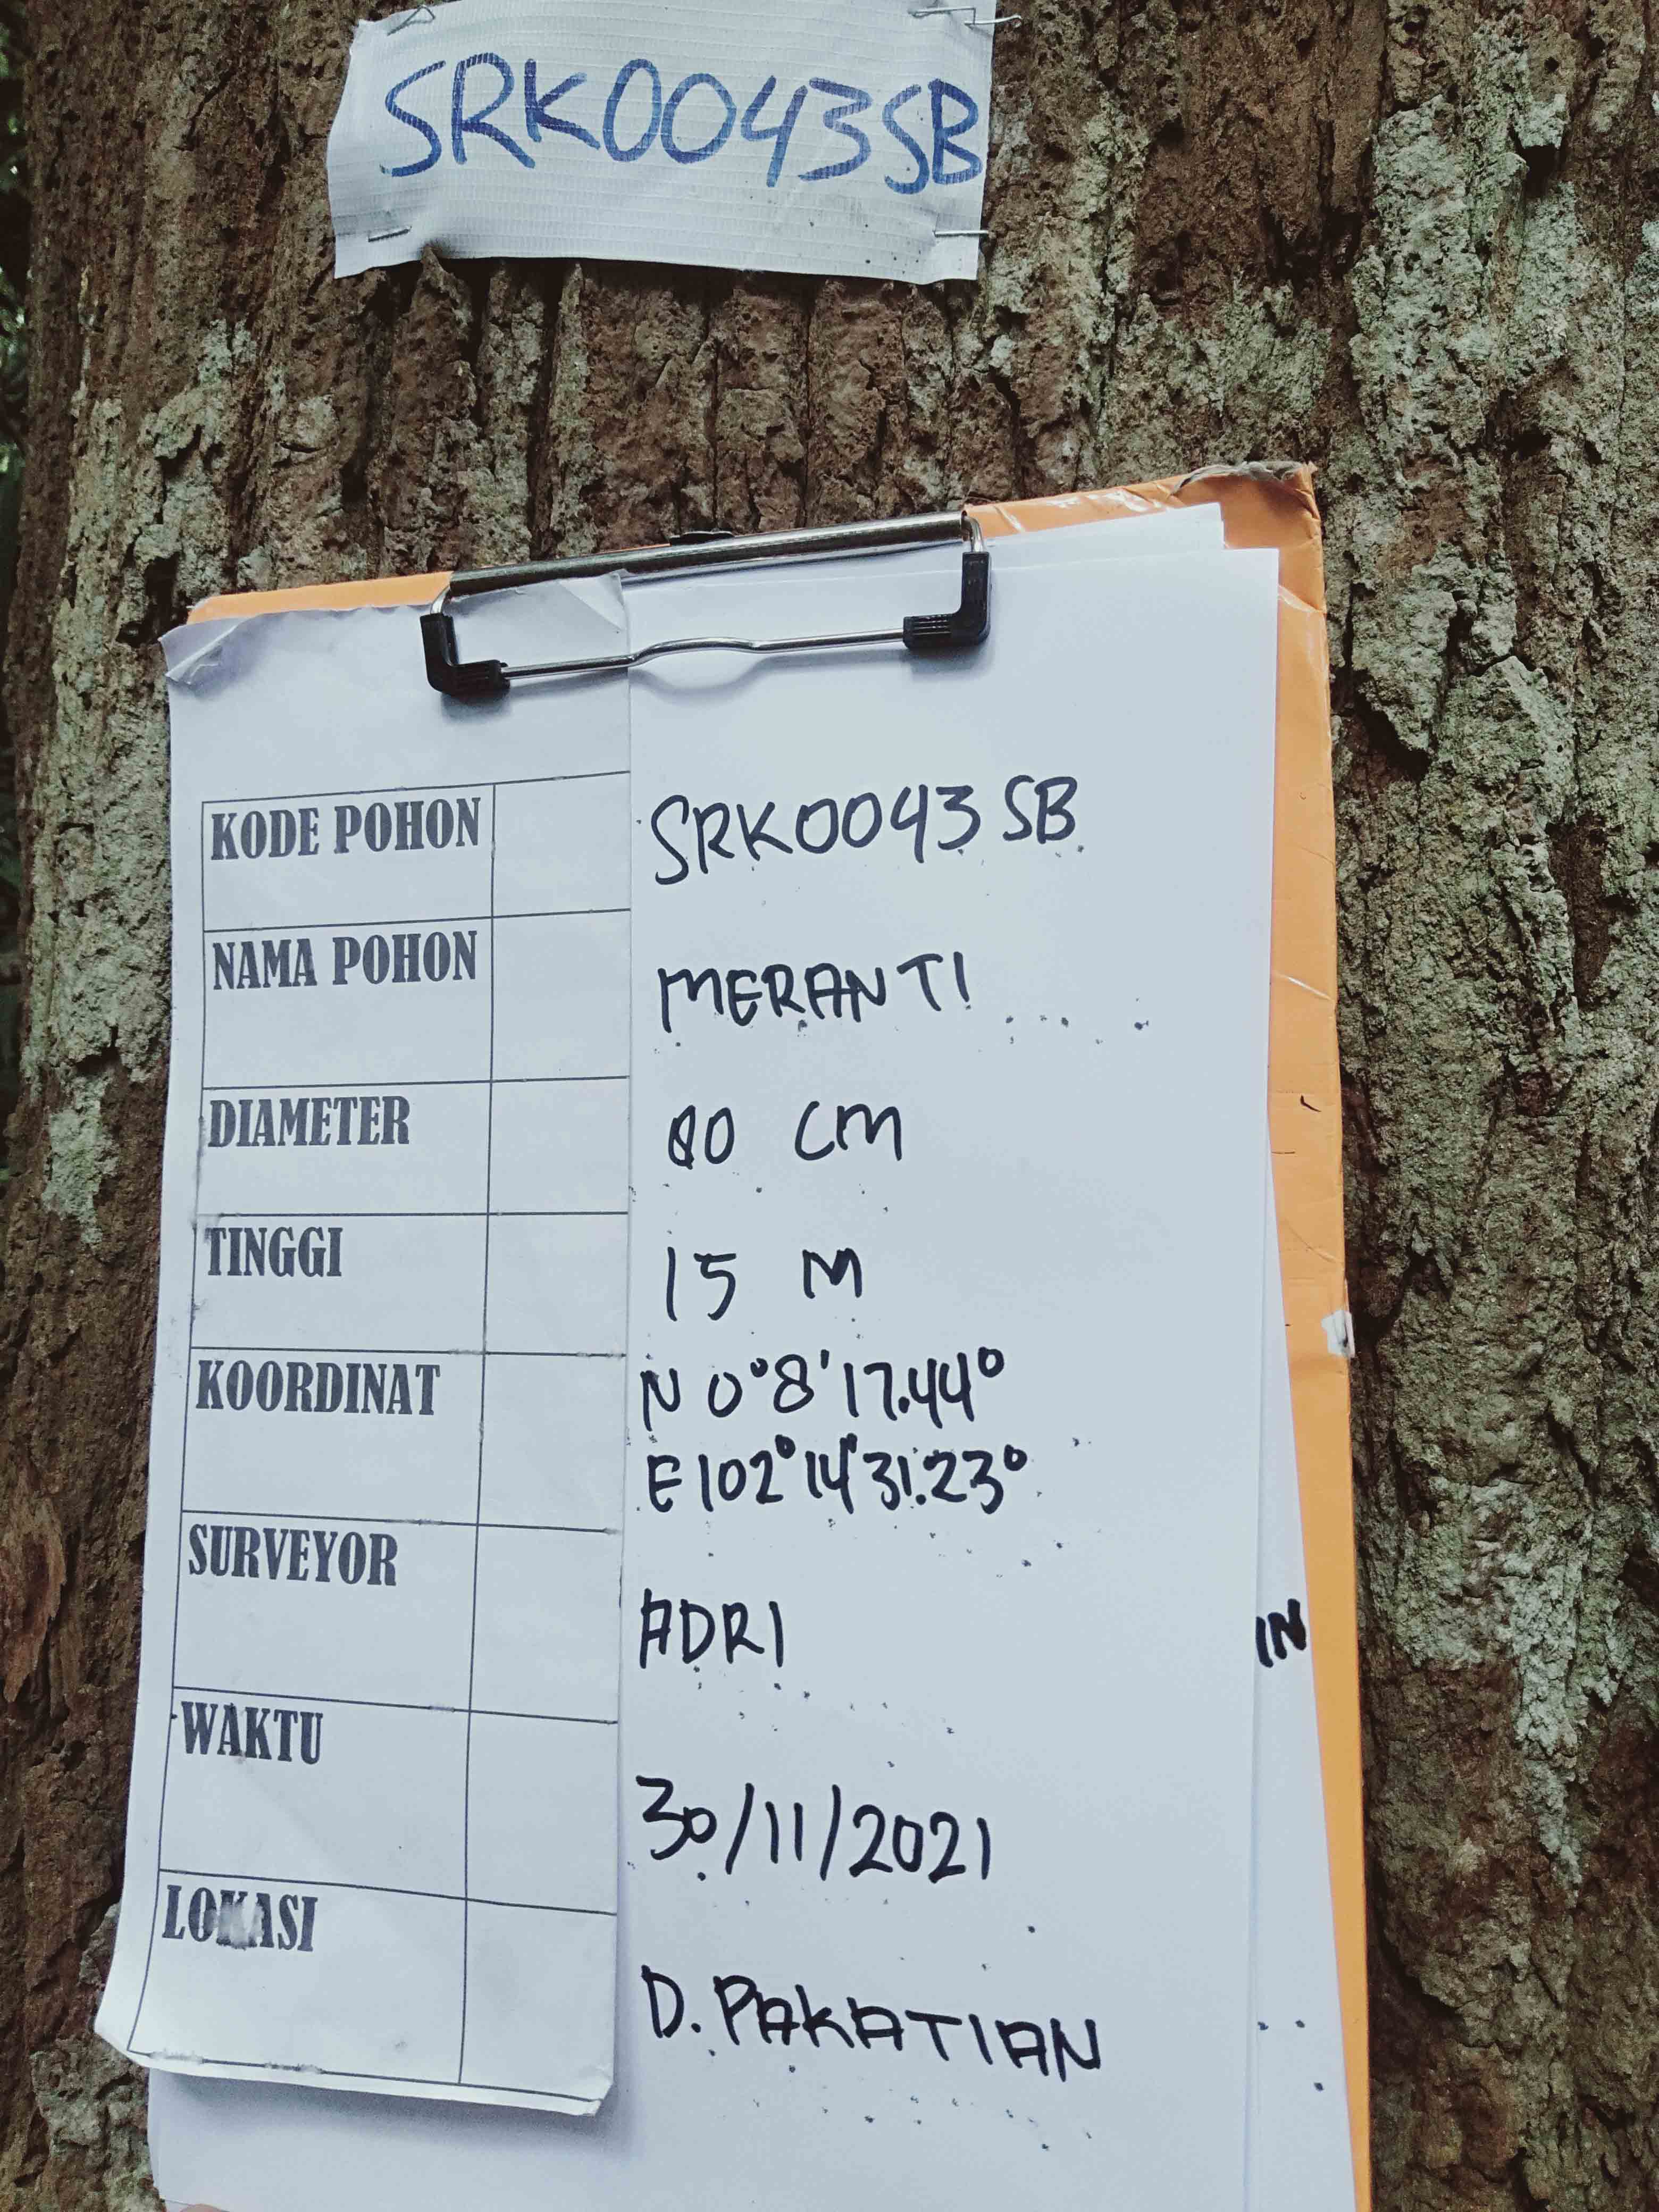 SRK0043SB
KODE POHON SRK0043SB
NAMA POHON MERANTI
DIAMETER CM
TINGGI 15 M
KOORDINAT N 0°8'17.44°
E 102°14'31.23°
SURVEYOR ADRI
IN
WAKTU 30/11/2021
LOKASI D. PAKATIAN